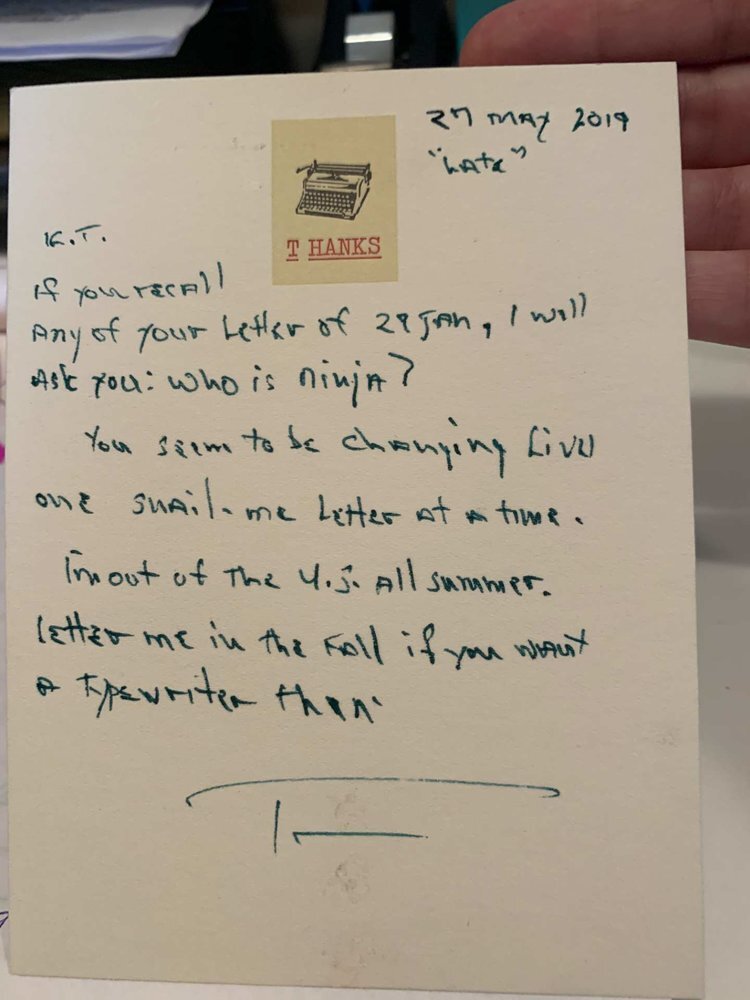 27 MAY 2019
"LATE"
T HANKS
K.T.
If you recall
Any of your Letter of 29 JAN, I will
Ask you: who is ninja?
You seem to be changing Lives
one snail-me Letter at a time.
I'm out of the U.S. All summer.
Letter me in the Fall if you want
A typewriter then.